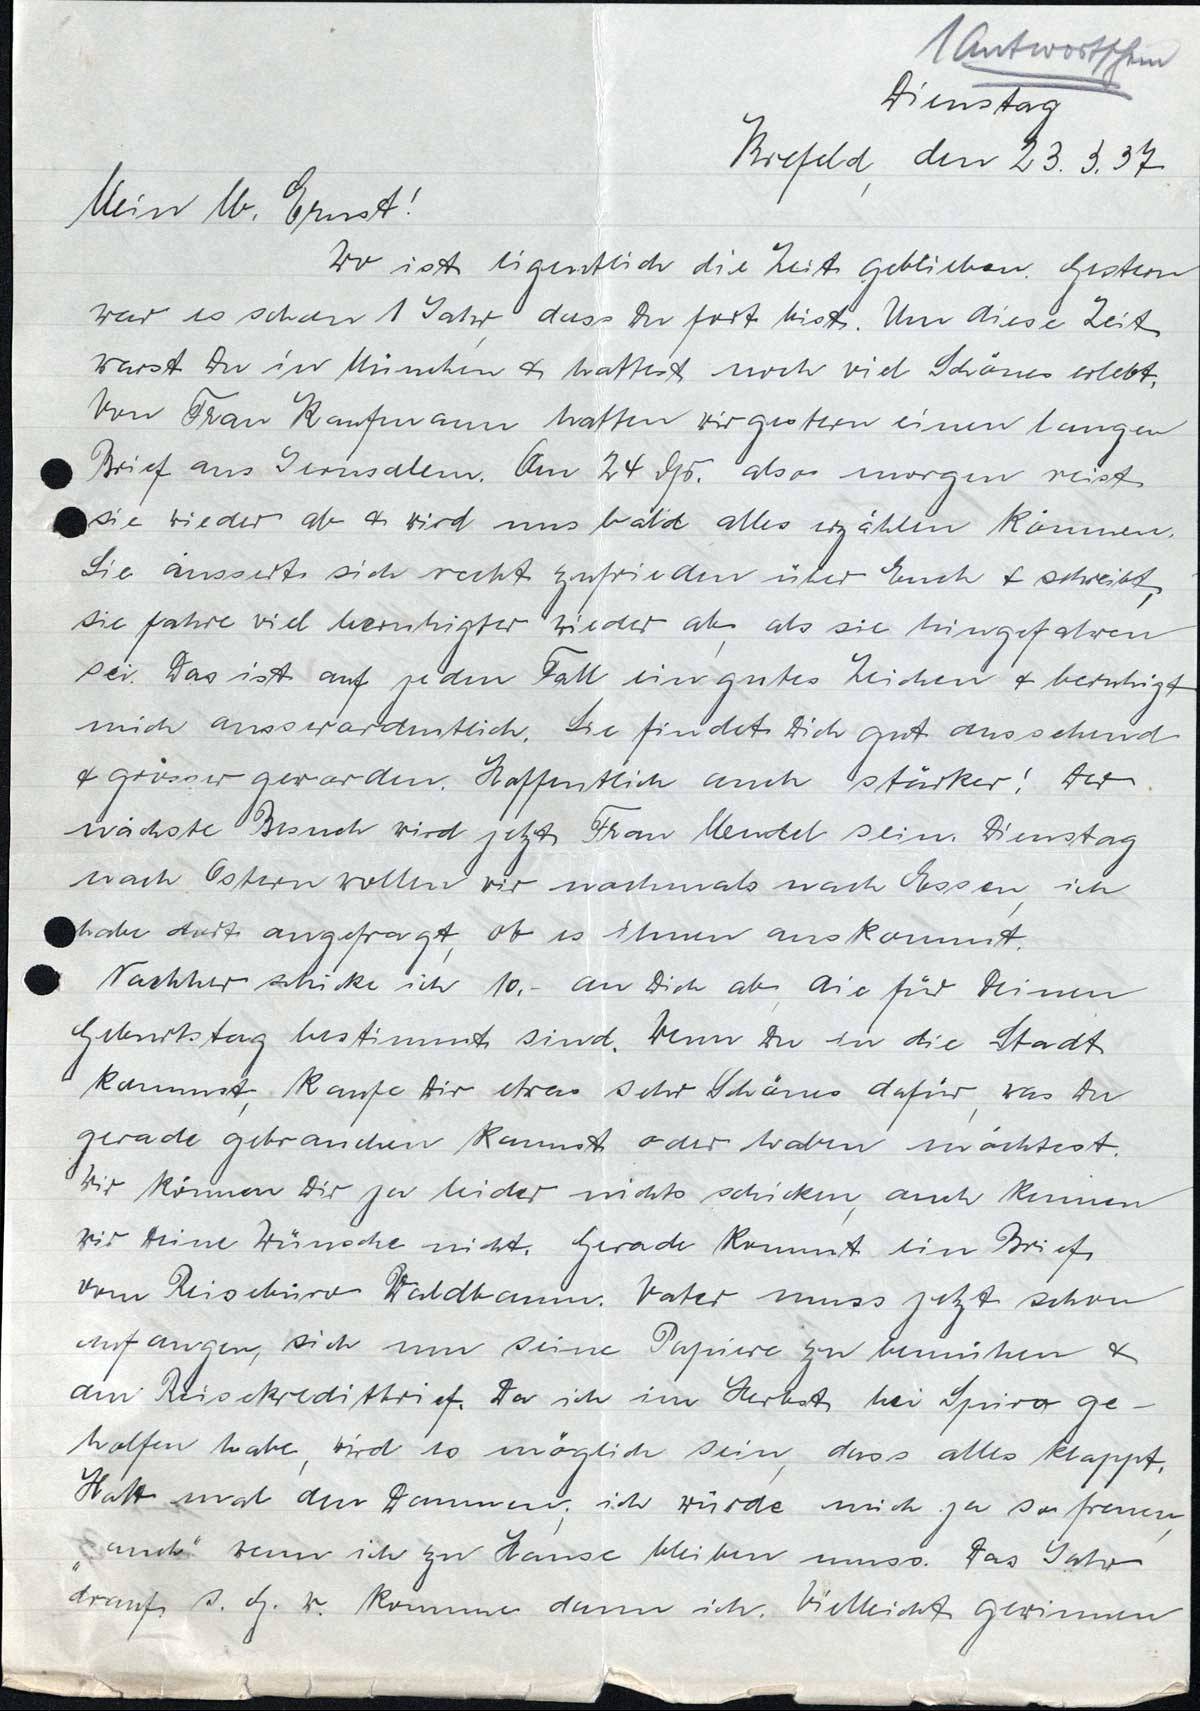 1 Antwortschein
Dienstag
Krefeld, den 23. 3. 37
Mein lb. Ernst!
Wo ist eigentlich die Zeit geblieben. Gestern
war es schon 1 Jahr, dass Du fort bist. Um diese Zeit
warst Du in München & hattest noch viel Schönes erlebt.
Von Frau Kaufmann hatten wir gestern einen langen
Brief aus Jerusalem. Am 24 ds. also morgen reist
sie wieder ab & wird uns bald alles erzählen können.
Sie äussert sich recht zufrieden über Euch & schreibt,
sie fahre viel beruhigter wieder ab, als sie hingefahren
sei. Das ist auf jeden Fall ein gutes Zeichen & beruhigt
mich ausserordentlich. Sie findet Dich gut aussehend
& grösser geworden. Hoffentlich auch stärker! Der
nächste Besuch wird jetzt Frau Mendel sein. Dienstag
nach Ostern wollen wir nochmals nach Essen, ich
habe dort angefragt, ob es ihnen auskommt.
Nachher schicke ich 10.- an Dich ab, die für Deinen
Geburtstag bestimmt sind. Wenn Du in die Stadt
kommst, kaufe Dir etwas sehr Schönes dafür, was Du
gerade gebrauchen kannst oder haben möchtest.
Wir können Dir ja leider nichts schicken, auch kennen
wir Deine Wünsche nicht. Gerade kommt ein Brief
vom Reisebüro Waldbaum. Vater muss jetzt schon
anfangen, sich um seine Papiere zu bemühen &
den Reisekreditbrief. Da ich im Herbst bei Spiro ge-
holfen habe, wird es möglich sein, dass alles klappt.
Halt mal den Daumen, ich würde mich ja so freuen,
„auch" wenn ich zu Hause bleiben muss. Das Jahr
drauf s. G. w. komme dann ich. Vielleicht gewinnen